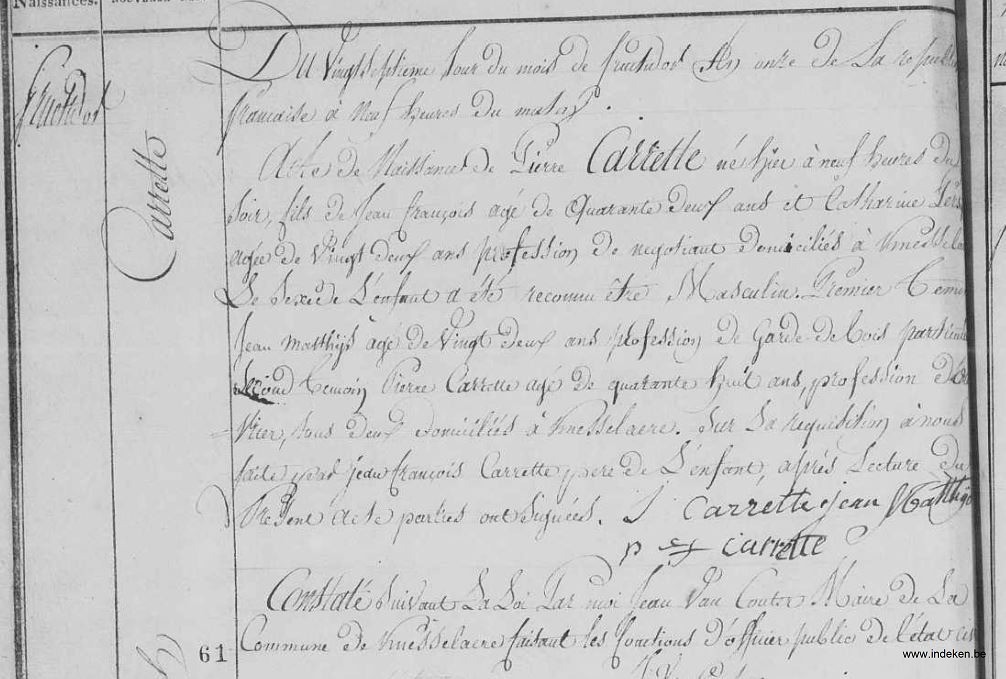 Naissances.
Fructidor
Carrette
Du Vingtseptieme Jour du mois de fructidor An onze de La republi
française à Neuf heures du matin.
Acte de Naissance de Pierre Carrette né hier à neuf heures du
soir, fils de Jean françois agé de Quarante deux ans et Catharine
agée de Vingt deux ans profession de negotiant domiciliés à Knesselae
Le Sexe de L'enfant a été reconnu être Masculin. Premier Temoi
Jean Matthijs agé de Vingt deux ans profession de Garde de bois particulie
second temoin Pierre Carrette agé de quarante huit ans, profession de
tous deux domiciliés à Knesselaere. Sur La requisition à nous
faite par jean françois Carrette pere de L'enfant, aprés Lecture du
Present acte parties ont signées. J Carrette jean Matthijs
p Carrette
Constaté suivant La Loi Par moi Jean Van Maire de La
Commune de Knesselaere faisant les fonctions d'officier public de l'état ci
61
www.indeken.be